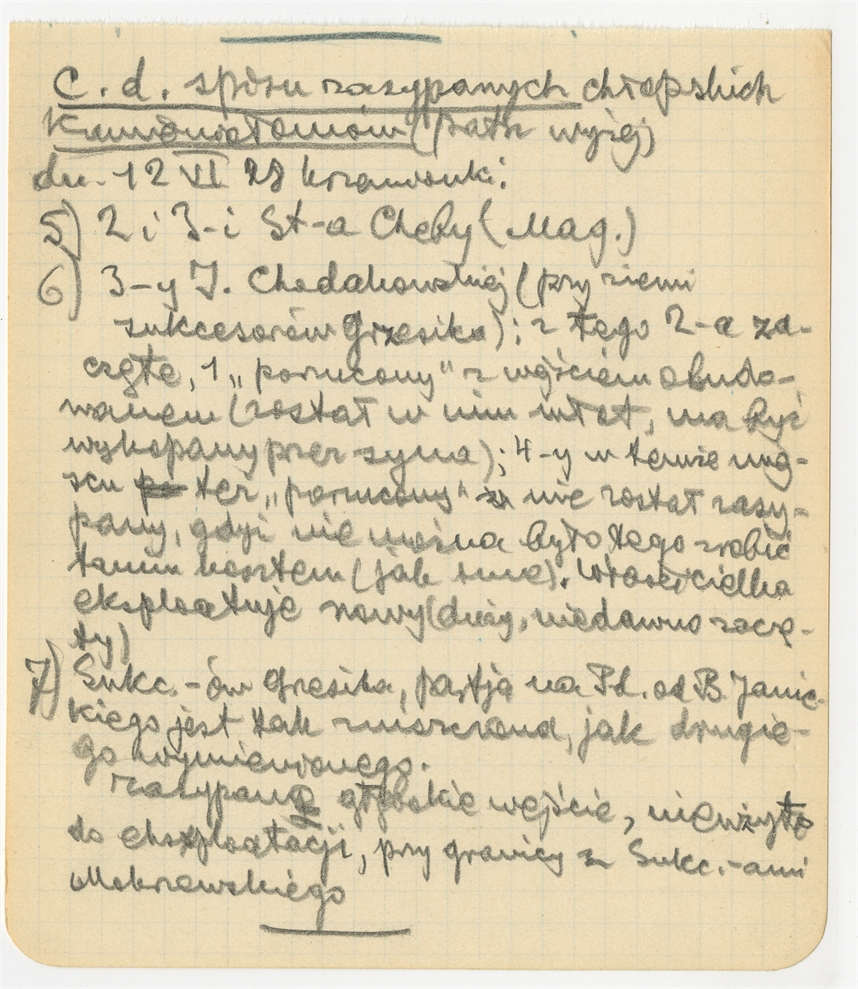 C. d. spisu zasypanych chłopskich
Kamieniołomów (patrz wyżej)
dn. 12 VI 28 Krzemionki.
5) 2 i 3-i St-a Cheby (Mag.)
6) 3-y J. Chodakowskiej (przy ziemi
sukcesorów Grzesika); z tego 2-a za-
częte, 1 „porzucony" z wyjściem obudo-
wanem (został w nim młot, ma być
wykopany przez syna); 4-y w temże miej-
scu też „porzucony" nie został zasy-
pany, gdyż nie można było tego zrobić
tanim kosztem (jak inne). Właścicielka
eksploatuje nowy (duży, niedawno zaczę-
ty)
7) Sukc.-ów Grzesika, partja na Pd. od B. Janic-
kiego jest tak zniszczona, jak drugie-
go wymienionego.
Zasypane głębokie wejście, nieużyte
do eksploatacji, przy granicy z Sukc.-ami
Mokrzewskiego